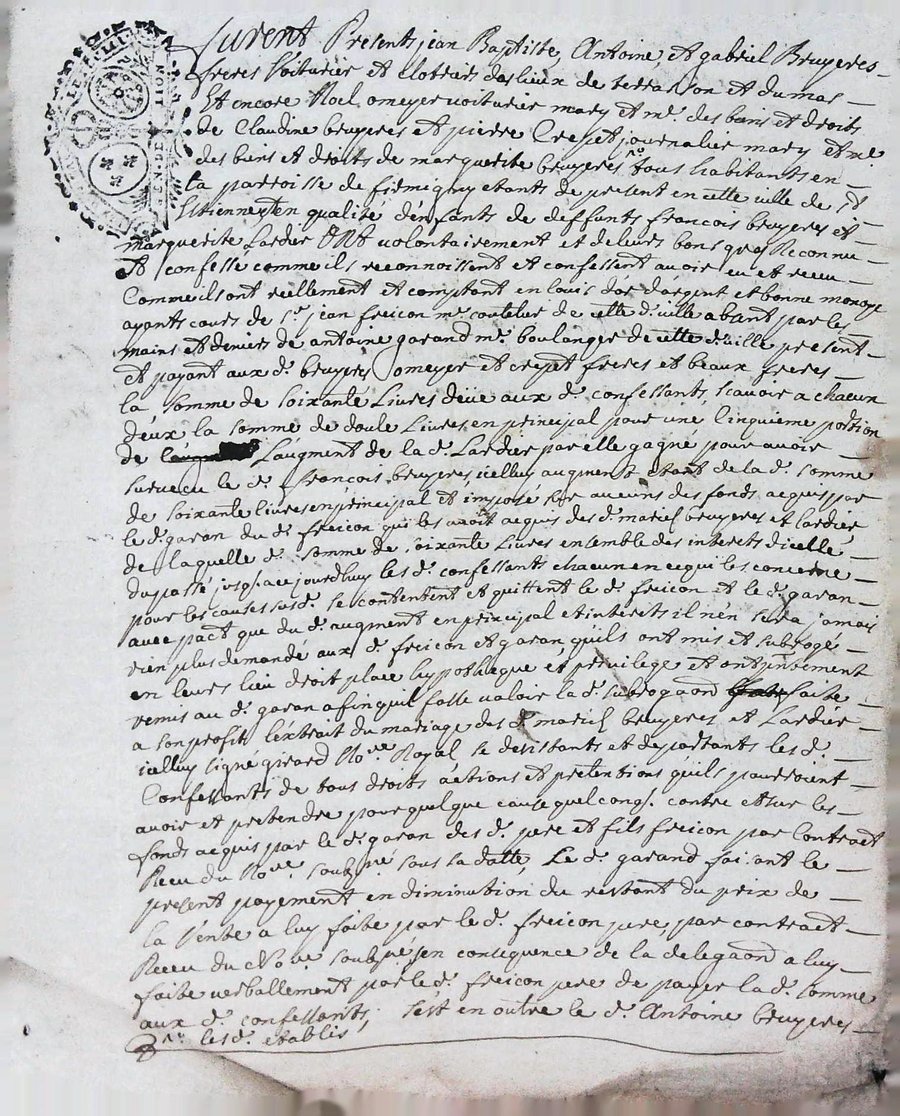 furent Presents jean Baptiste, Antoine, et gabriel Bruyeres
freres Voiturier et Clotriers des lieux de terrasson et du mas
Et encore Noel omeyer voiturier mary et me. des biens et droits
de Claudine bruyeres et pierre Crespet journalier mary et me
des biens et droits de marguerite bruyeres tous habitants en
la parroisse de firmigny etants de present en cette ville de St
Etienne, en qualité d'enfants de deffunts francois bruyeres et
marguerite Lardier ONt volontairement et de leurs bons gres Reconnu
et confessé comme ils reconnoissent et confessent avoir eu et receu
Comme ils ont reellement et comptant en louis d'or d'argent et bonne monoye
ayants cours de Sr. jean freicon me. coutelier de cette d. ville absent par les
mains et deniers de antoine garand me. boulanger de cette d. ville present
et payant aux d. bruyeres omeyer et crepet freres et beaux freres
la somme de soixante Livres deüe aux d. confessants, scavoir a chacun
deux la somme de douse Livres en principal pour une Cinquieme portion
de L'augment de la d. Lardier par elle gagné pour avoir
survecu le d. françois bruyeres, icelluy augment etant de la d. somme
de soixante livres en principal et imposé sur aucuns des fonds acquis par
le d. garan du d. freicon qui les avoit acquis des d. mariés bruyeres et lardier
de laquelle d. somme de soixante Livres ensemble des interets d'icelle
du passé jusq. a ce jourdhuy les d. confessants chacun en ce qui les concerne
pour les causes susd. se contentent et quittent le d. freicon et le d. garan
avec pact que du d. augment en principal et interets il n'en sera jamais
rien plus demandé aux d. freicon et garan, quils ont mis et subrogé
en leurs lieu droit place hypotheque et privilege et ont presentement
remis au d. garan afin quil fasse valoir la d. subrogaon faite
a son profit L'extrait du mariage des d. mariés bruyeres et Lardier
icelluy signé girard Nore Royal se desistants et departants les d.
Confessants de tous droits actions et pretentions quils pourroient
avoir et pretendre pour quelque cause quelconq. contre et sur les
fonds acquis par le d. garan des d. pere et fils freicon par Contract
Receu du Nore. soubsné sous sa datte, Le d. garand faisant le
present payement en diminution du restant du prix de
la Vente a luy faite par le d. freicon pere, par contract
Receu du Nore. soubsné, en consequence de la delegaon a luy
faite verballement par le d. freicon pere de payer la d. somme
aux d. confessants; s'est en outre le d. Antoine bruyeres
les d. etablis